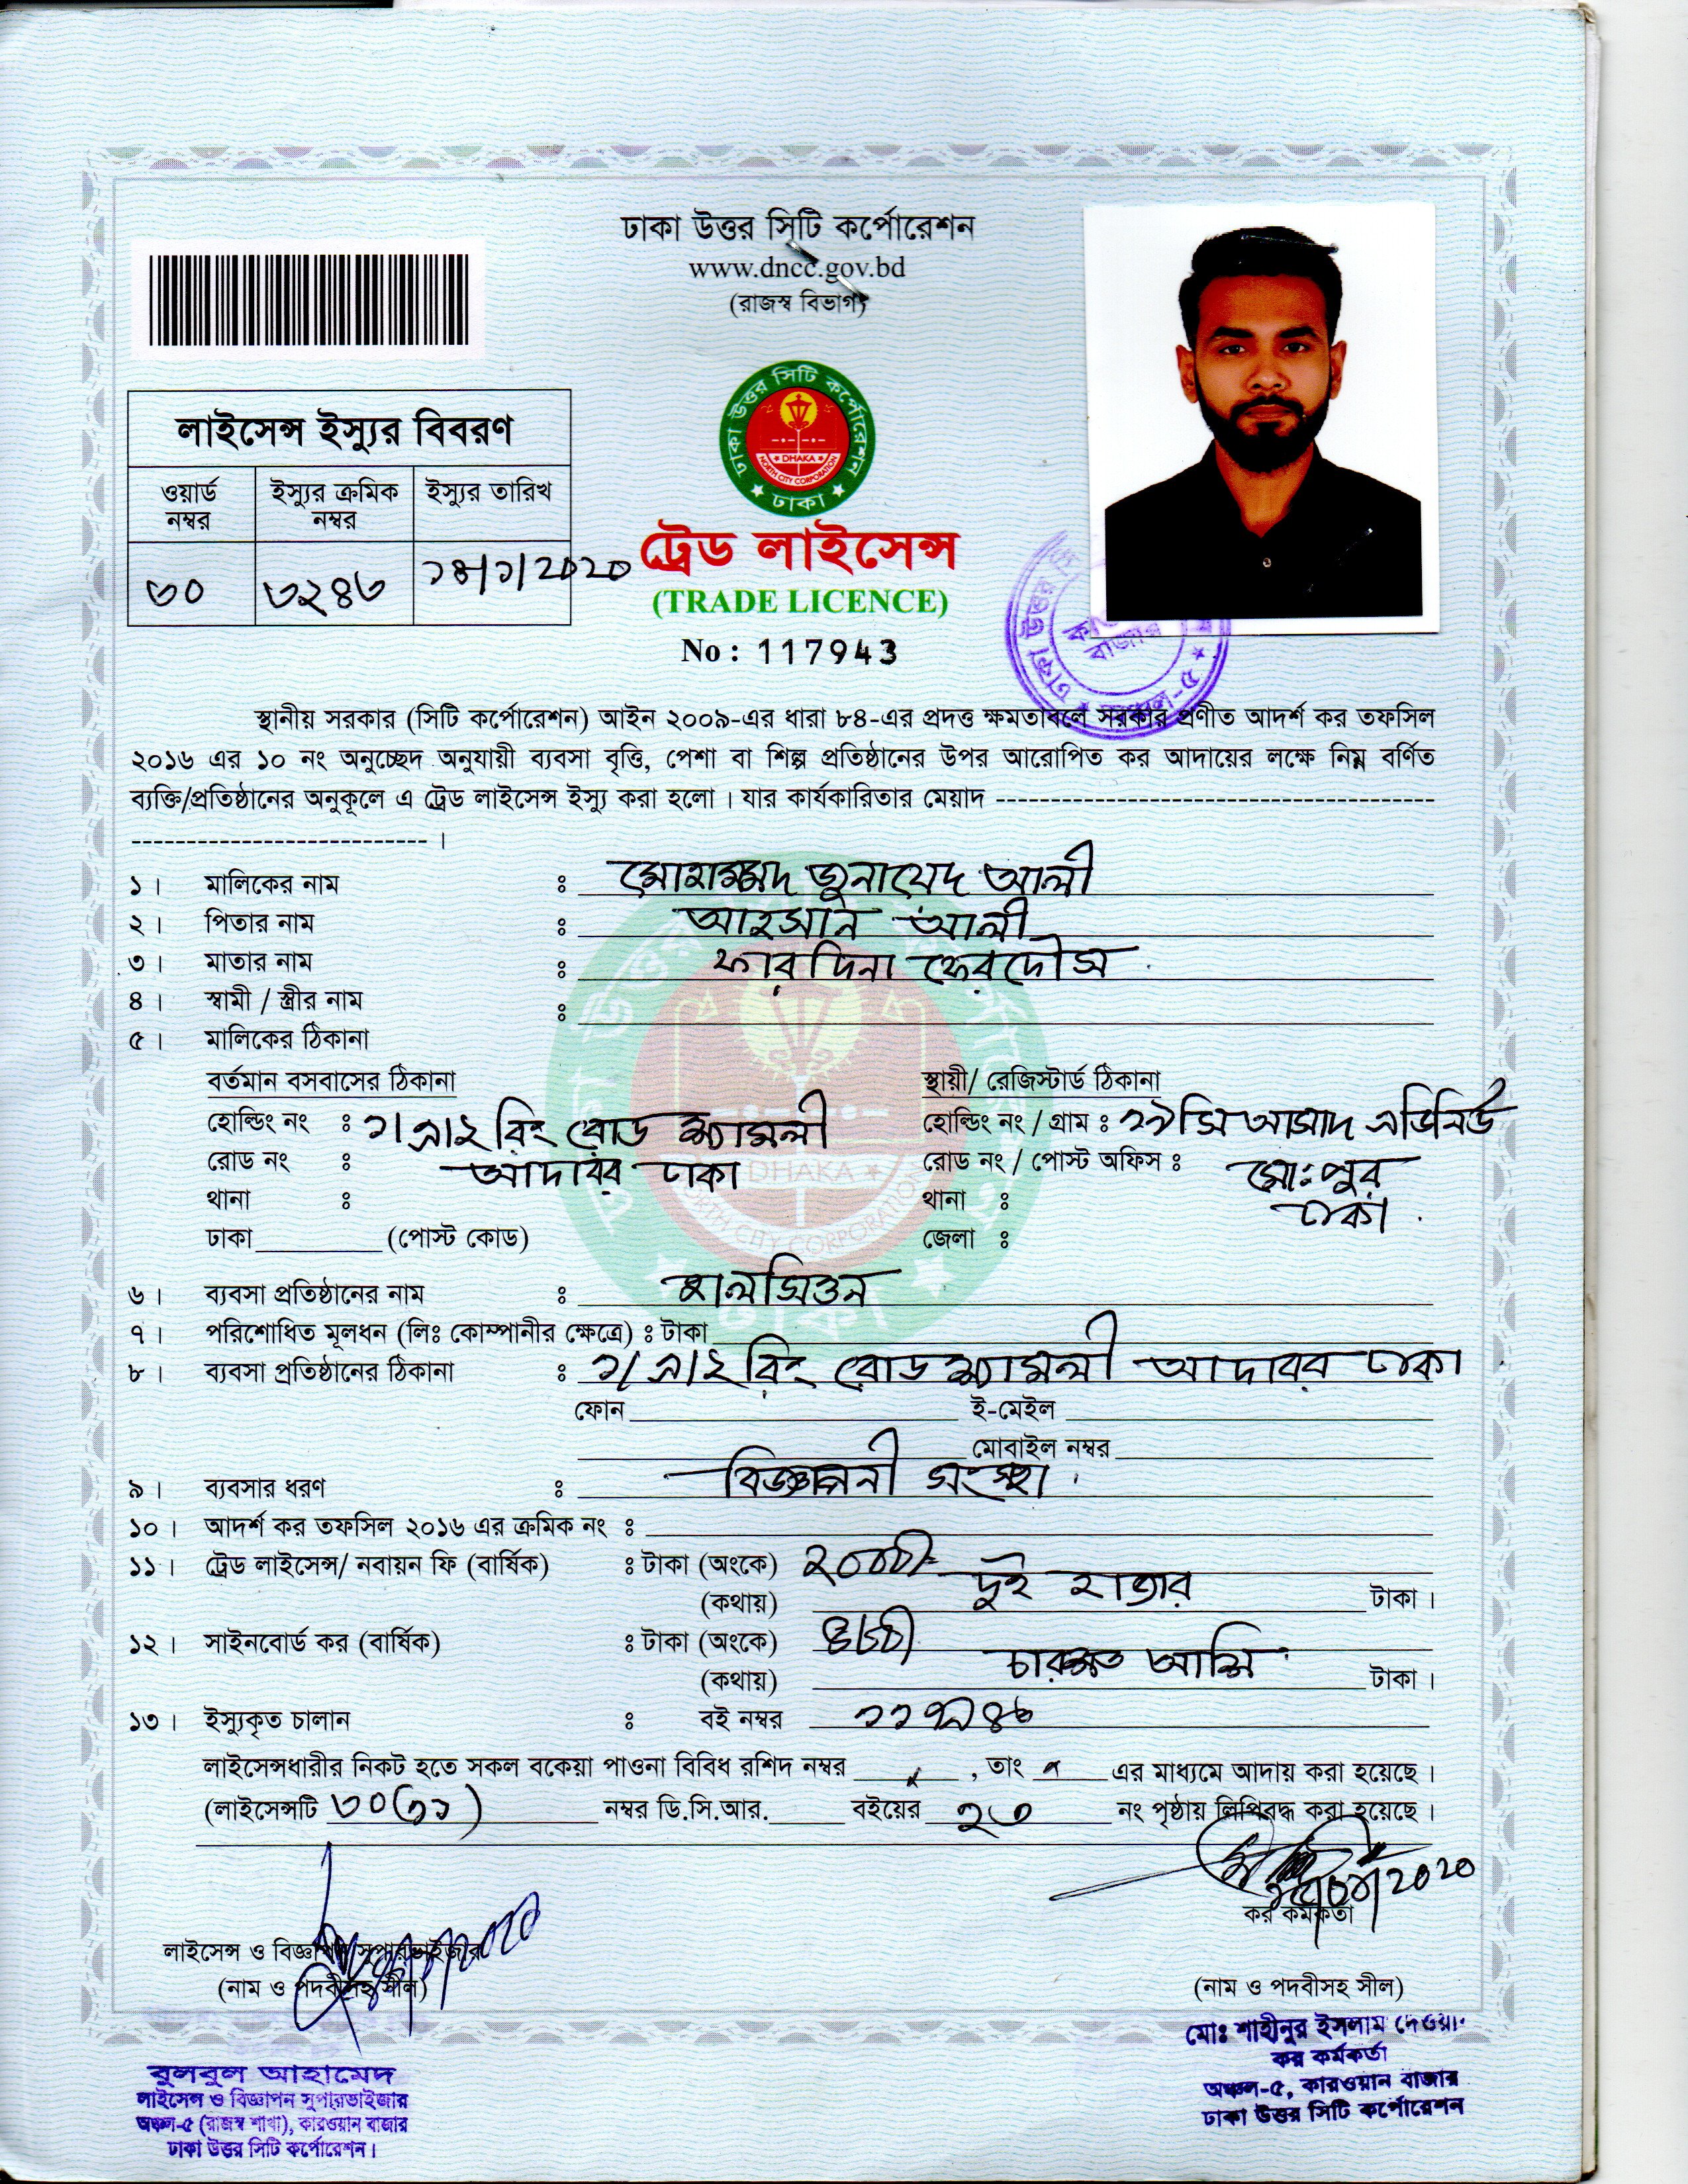 ঢাকা উত্তর সিটি কর্পোরেশন
www.dncc.gov.bd
(রাজস্ব বিভাগ)
লাইসেন্স ইস্যুর বিবরণ
ওয়ার্ড নম্বর
ইস্যুর ক্রমিক নম্বর
ইস্যুর তারিখ
৩০
৩২৪৩
১৪/১/2020
ঢাকা উত্তর সিটি কর্পোরেশন
DHAKA
NORTH CITY CORPORATION
ঢাকা
ট্রেড লাইসেন্স
(TRADE LICENCE)
No : 117943
স্থানীয় সরকার (সিটি কর্পোরেশন) আইন ২০০৯-এর ধারা ৮৪-এর প্রদত্ত ক্ষমতাবলে সরকার প্রণীত আদর্শ কর তফসিল
২০১৬ এর ১০ নং অনুচ্ছেদ অনুযায়ী ব্যবসা বৃত্তি, পেশা বা শিল্প প্রতিষ্ঠানের উপর আরোপিত কর আদায়ের লক্ষে নিম্ন বর্ণিত
ব্যক্তি/প্রতিষ্ঠানের অনুকূলে এ ট্রেড লাইসেন্স ইস্যু করা হলো । যার কার্যকারিতার মেয়াদ ----------
---------- ।
১। মালিকের নাম : মোহাম্মদ জুনায়েদ আলী
২। পিতার নাম : আহসান আলী
৩। মাতার নাম : ফারদিনা ফেরদৌস
৪। স্বামী / স্ত্রীর নাম :
৫। মালিকের ঠিকানা
বর্তমান বসবাসের ঠিকানা স্থায়ী/ রেজিস্টার্ড ঠিকানা
হোল্ডিং নং : ১/এ/২ রিং রোড শ্যামলী হোল্ডিং নং / গ্রাম : ২৯ সি আসাদ এভিনিউ
রোড নং : আদাবর ঢাকা রোড নং / পোস্ট অফিস : মো:পুর
থানা : থানা : ঢাকা
ঢাকা________ (পোস্ট কোড) জেলা :
৬। ব্যবসা প্রতিষ্ঠানের নাম : হালসিওন
৭। পরিশোধিত মূলধন (লিঃ কোম্পানীর ক্ষেত্রে) : টাকা
৮। ব্যবসা প্রতিষ্ঠানের ঠিকানা : ১/এ/২ রিং রোড শ্যামলী আদাবর ঢাকা
ফোন ই-মেইল
মোবাইল নম্বর
৯। ব্যবসার ধরণ : বিজ্ঞাপনী সংস্থা
১০। আদর্শ কর তফসিল ২০১৬ এর ক্রমিক নং :
১১। ট্রেড লাইসেন্স/ নবায়ন ফি (বার্ষিক) : টাকা (অংকে) ২০০০/=
(কথায়) দুই হাজার টাকা।
১২। সাইনবোর্ড কর (বার্ষিক) : টাকা (অংকে) ৪৮০/
(কথায়) চারশত আশি টাকা।
১৩। ইস্যুকৃত চালান : বই নম্বর ১১৭৯৪৩
লাইসেন্সধারীর নিকট হতে সকল বকেয়া পাওনা বিবিধ রশিদ নম্বর ____ , তাং ____ এর মাধ্যমে আদায় করা হয়েছে।
(লাইসেন্সটি ৩০(১১) নম্বর ডি.সি.আর.____ বইয়ের ২৩ নং পৃষ্ঠায় লিপিবদ্ধ করা হয়েছে।
লাইসেন্স ও বিজ্ঞাপন সুপারভাইজার
(নাম ও পদবীসহ সীল)
কর কর্মকর্তা
(নাম ও পদবীসহ সীল)
বুলবুল আহামেদ
লাইসেন্স ও বিজ্ঞাপন সুপারভাইজার
অঞ্চল-৫ (রাজস্ব শাখা), কারওয়ান বাজার
ঢাকা উত্তর সিটি কর্পোরেশন।
মোঃ শাহীনুর ইসলাম
কর কর্মকর্তা
অঞ্চল-৫, কারওয়ান বাজার
ঢাকা উত্তর সিটি কর্পোরেশন